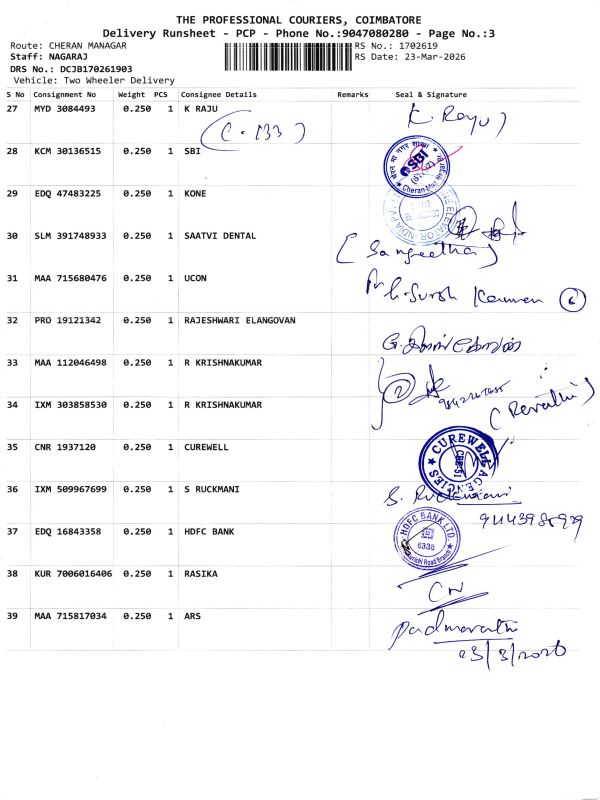 THE PROFESSIONAL COURIERS, COIMBATORE
Delivery Runsheet - PCP - Phone No.:9047080280 - Page No.:3
Route: CHERAN MANAGAR RS No.: 1702619
Staff: NAGARAJ RS Date: 23-Mar-2026
DRS No.: DCJB170261903
Vehicle: Two Wheeler Delivery
S No Consignment No Weight PCS Consignee Details Remarks Seal & Signature
27 MYD 3084493 0.250 1 K RAJU K. Raju
(C. 133)
28 KCM 30136515 0.250 1 SBI SBI
29 EDQ 47483225 0.250 1 KONE
30 SLM 391748933 0.250 1 SAATVI DENTAL
(Sangeetha)
31 MAA 715680476 0.250 1 UCON
32 PRO 19121342 0.250 1 RAJESHWARI ELANGOVAN
33 MAA 112046498 0.250 1 R KRISHNAKUMAR
34 IXM 303858530 0.250 1 R KRISHNAKUMAR (Revathi)
35 CNR 1937120 0.250 1 CUREWELL CUREWELL AGENCIES
36 IXM 509967699 0.250 1 S RUCKMANI S. Ruckmani
37 EDQ 16843358 0.250 1 HDFC BANK HDFC BANK LTD. 6338
38 KUR 7006016406 0.250 1 RASIKA
39 MAA 715817034 0.250 1 ARS Padmavathi
23/3/2026